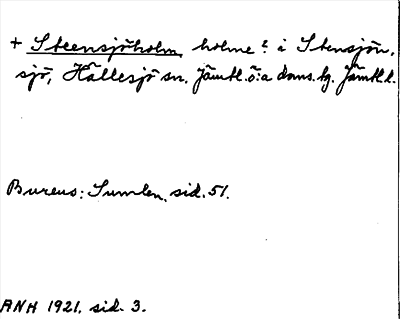 + Steensjöholm holme? i Stensjön,
sjö, Hällesjö sn. Jämtl. ö:a doms. hg. Jämtl. l.
Bureus: Sumlen, sid. 51.
ANH 1921, sid. 3.